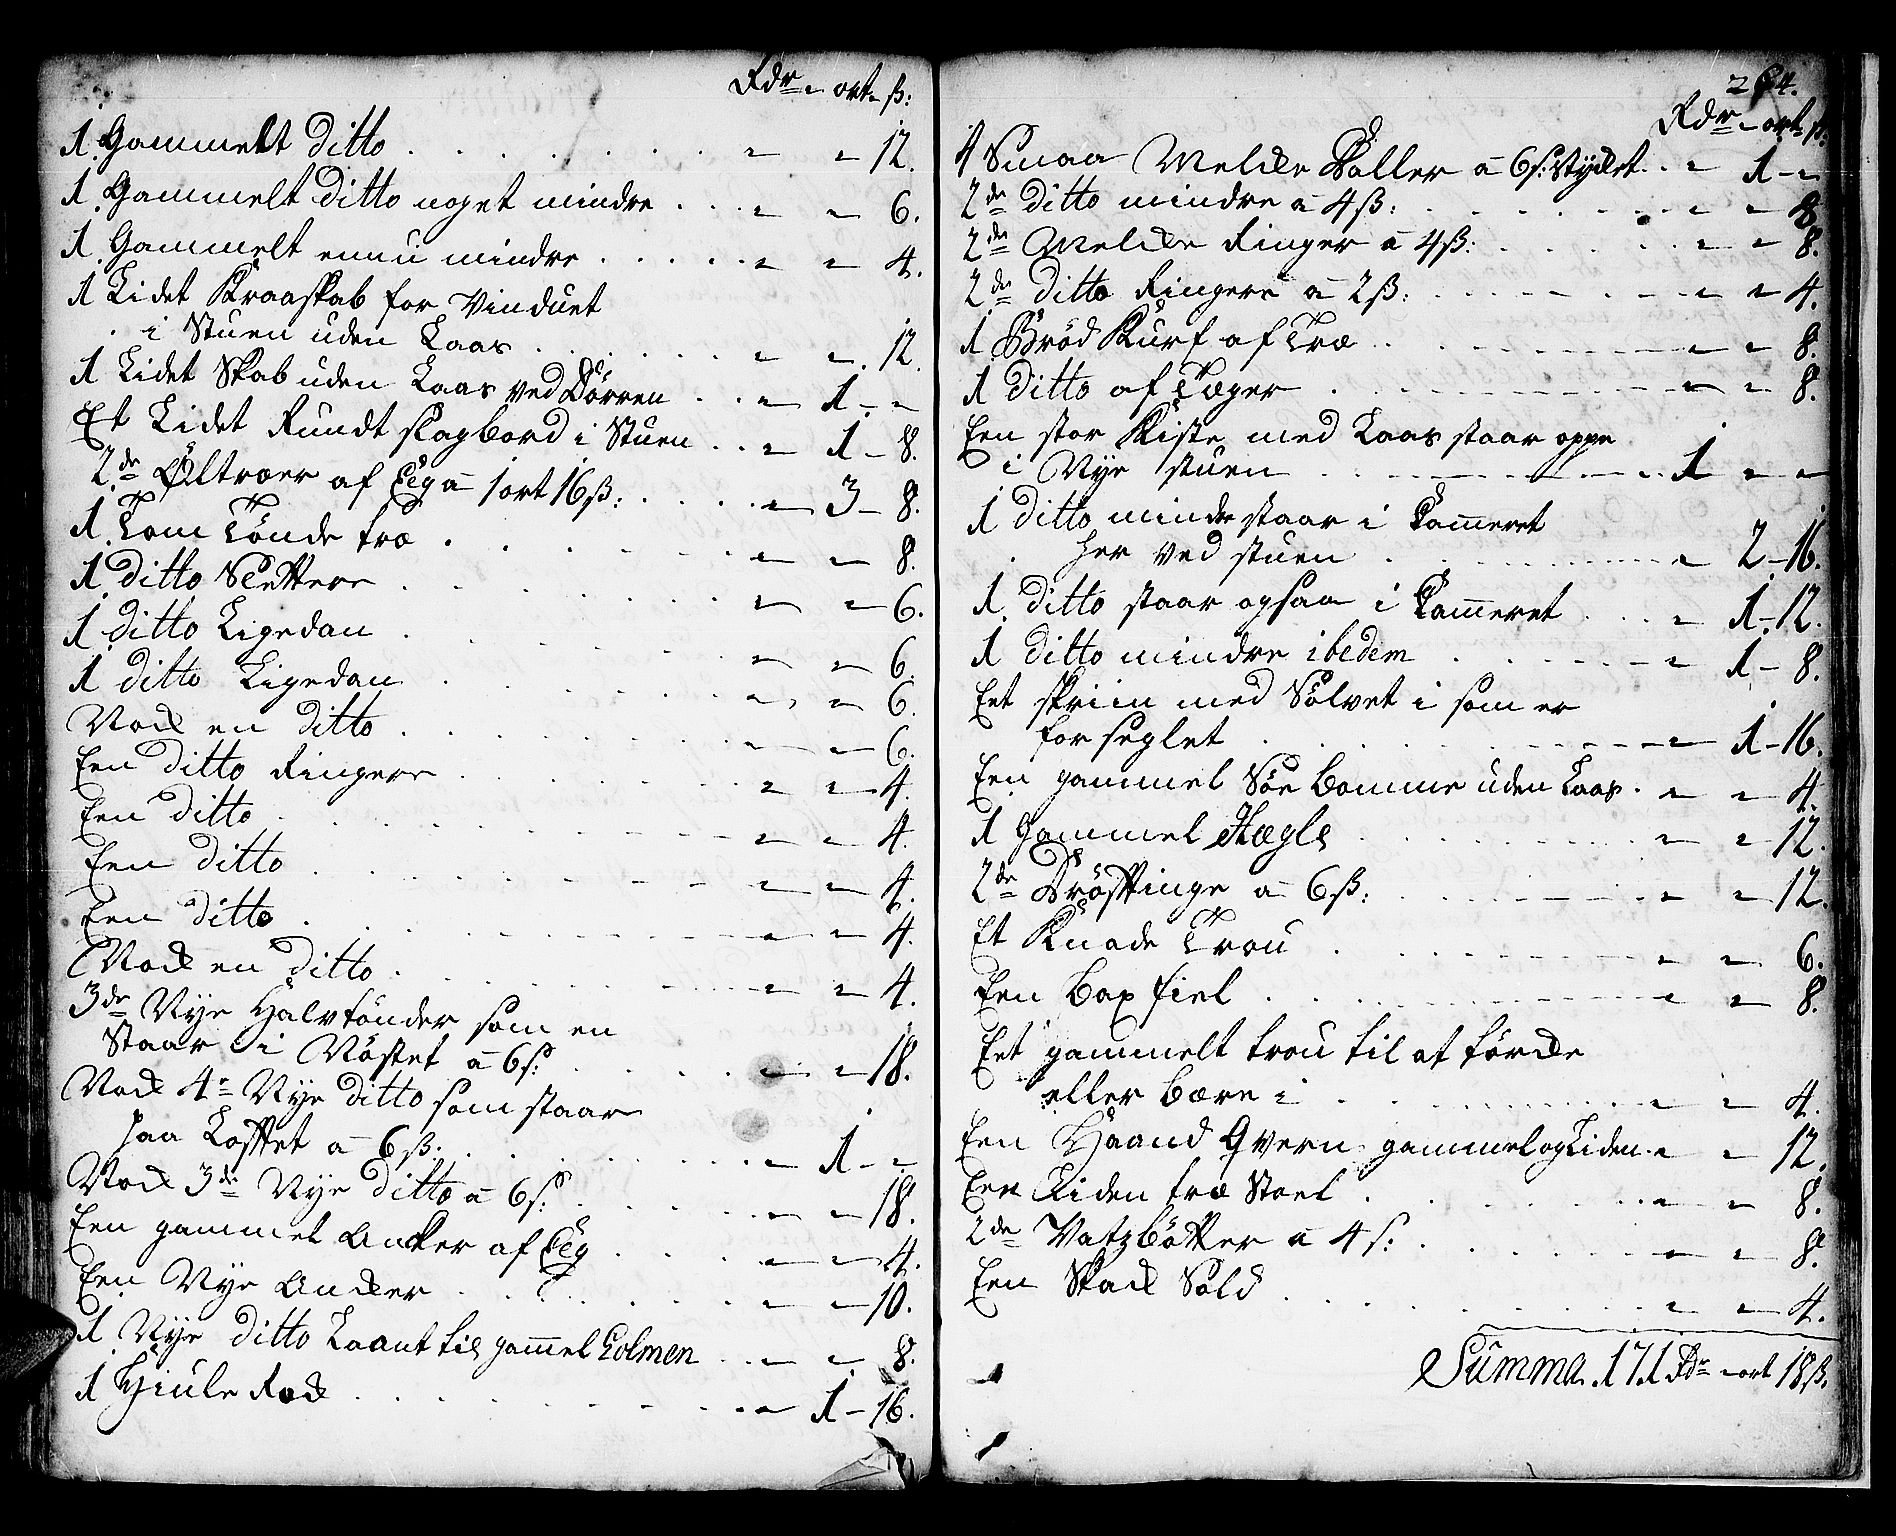 Rdr - ort - ß:
1. Gammelt ditto - - 12.
1. Gammelt ditto noget mindre - - 6.
1. Gammelt ennu mindre - - 4.
1 Lidet Kraaskab for Vinduet
i Stuen uden Laas - - 12.
1 Lidet Skab uden Laas ved Dörren - 1 - -
Et Lidet Rundt slagbord i Stuen - 1 - 8.
2de Öltræer af Eeg a 1 ort 16 ß: - 3 - 8.
1. Tom Tönde træ - - 8.
1. ditto Slettere - - 6.
1. ditto Ligedan - - 6.
1 ditto Ligedan - - 6.
Nock en ditto - - 6.
Een ditto Ringere - - 4.
Een ditto - - 4.
Een ditto - - 4.
Een ditto - - 4.
Nock en ditto - - 4.
3de Nye Halvtönder som en
Staar i Nöstet a 6 s: - - 18.
Nock 4e Nye ditto som staar
paa Lofftet a 6 ß: - 1 - -
Nock 3de Nye ditto a 6 s: - - 18.
Een gammel Ancker af Eeg - - 4.
Een Nye Ancker - - 10.
1. Nye ditto Laant til gam̄el Colmen - - 8.
1 Hiule Rock - 1 - 16.
264.
Rdr - ort - ß:
4 Smaa Melcke Koller a 6 s: Stycket - 1 - -
2de ditto mindre a 4 ß: - - 8
2de Melcke Ringer a 4 ß: - - 8.
2de ditto Ringere a 2 ß: - - 4.
1. Bröd Kurf af Træ - - 8.
1 ditto af Tæger - - 8.
Een stor Kiste med Laas staar oppe
i Nye stuen 1 - -
1 ditto mindre staar i Kam̄eret
her ved stuen - 2 - 16.
1. ditto staar ogsaa i Kam̄eret - 1 - 12.
1 ditto mindre ibedem - 1 - 8.
Eet skriin med Sölvet i som er
forseglet - 1 - 16.
Een gammel Söe Bomme uden Laas - - 4.
1 Gammel Hægle - - 12.
2de Dröftinge a 6 ß: - - 12.
Et Knade Trou - - 6.
Een Bag fiel - - 8.
Eet gammelt trou til at förcke
eller bære i - - 4.
Een Haand Qvern gammel og Liden - - 12.
Een Liden træ Stoel - - 8.
2de Vatzbötter a 4 s: - - 8.
Een Skack Sold - - 4.
Summa 171 Rdr - ort 18 ß.